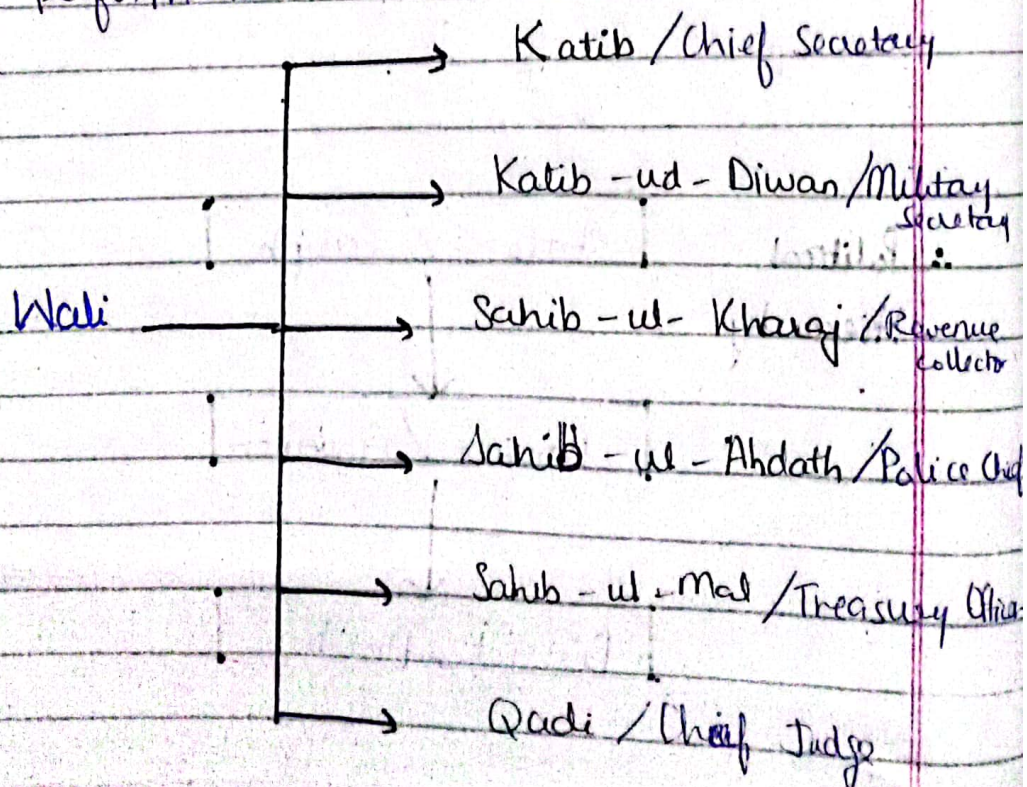 Katib / Chief Secretary
Katib - ud - Diwan / Military
Secretary
Wali
Sahib - ul - Kharaj / Revenue
Collector
Sahib - ul - Ahdath / Police Chief
Sahib - ul - Mal / Treasury Officer
Qadi / Chief Judge